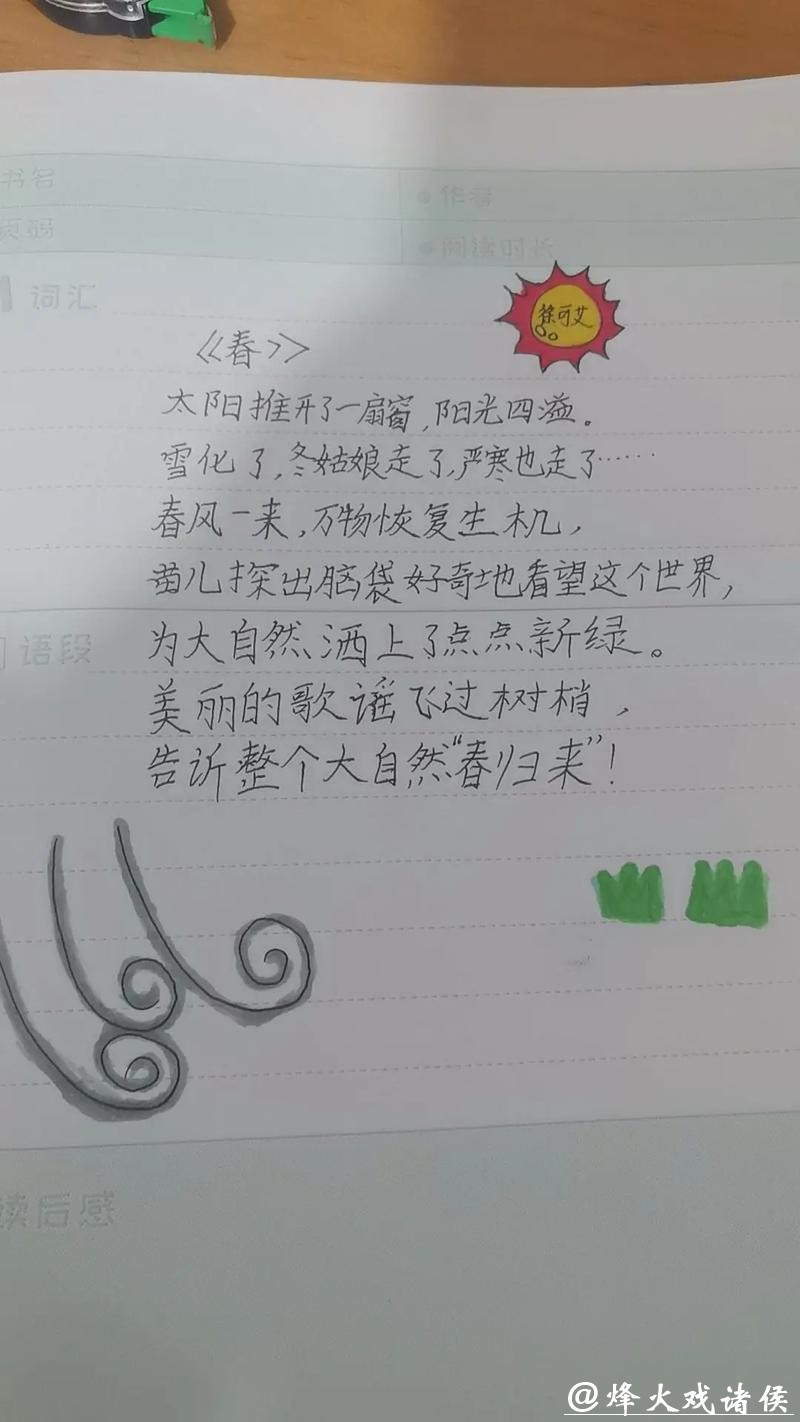 书名
作者
页码
阅读时长
词汇
徐可艾
《春》
太阳推开了一扇窗,阳光四溢。
雪化了,冬姑娘走了,严寒也走了……
春风一来,万物恢复生机,
苗儿探出脑袋好奇地看望这个世界,
语段
为大自然洒上了点点新绿。
美丽的歌谣飞过树梢,
告诉整个大自然“春归来”!
读后感
@烽火戏诸侯